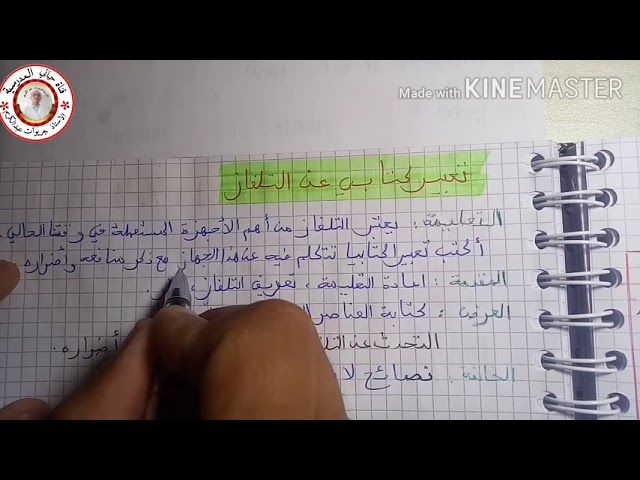 Made with KINEMASTER
قناة حياتي المدرسية
الأستاذ جريوات عبدالكريم
تعبير كتابي عن التلفاز
التعليمة : يعتبر التلفاز من أهم الأجهزة المستعملة في وقتنا الحالي.
أكتب تعبيرا كتابيا تتكلم فيه عن هذا الجهاز مع ذكر منافعه وأضراره.
المقدمة : اعادة التعليمة ، تعريف التلفاز،
العرض : كتابة العناصر
التحدث عن التلفاز أضراره.
الخاتمة : نصائح